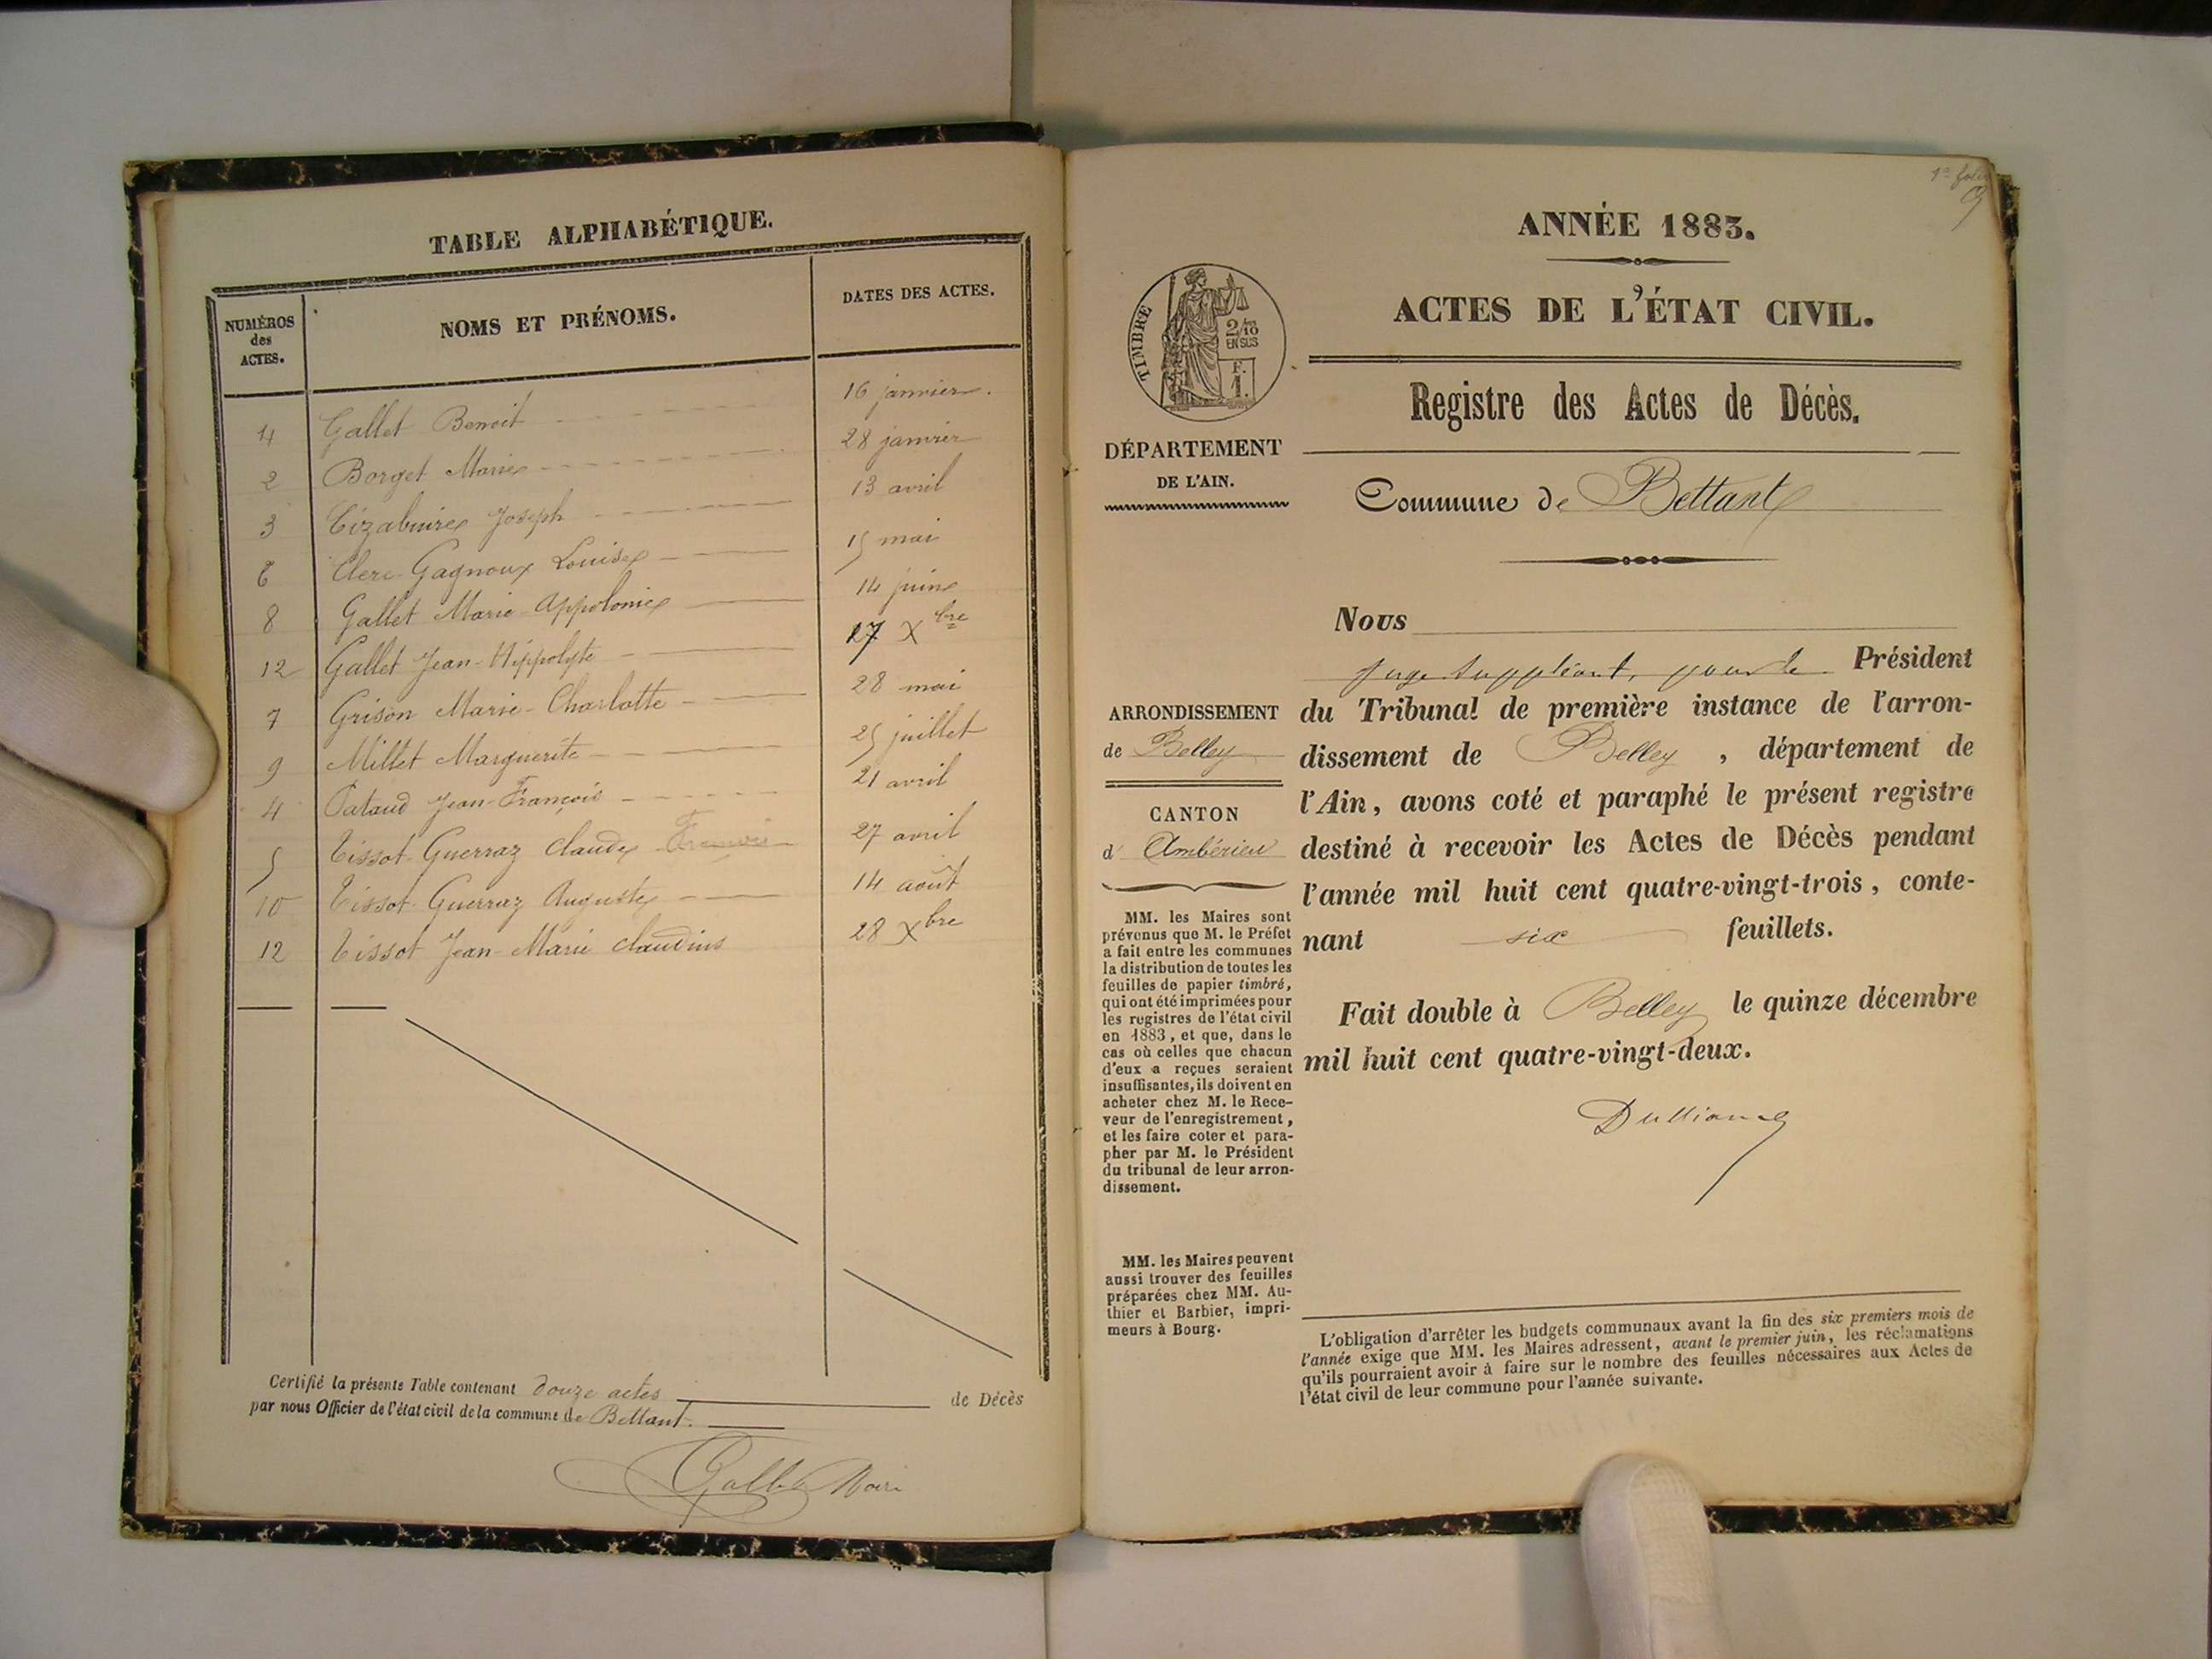 TABLE ALPHABÉTIQUE.
NUMÉROS
des
ACTES.
NOMS ET PRÉNOMS.
DATES DES ACTES.
Gallet Benoit 16 janvier.
2 Borget Marie 28 janvier
3 Joseph 13 avril
6 Clerc-Gagnoux Louise 15 mai
8 Gallet Marie-Appolonie 14 juin
12 Gallet Jean-Hippolyte 17 Xbre
7 Grison Marie-Charlotte 28 mai
9 Millet Marguerite 25 juillet
4 Pataud Jean-François 21 avril
5 Tissot-Guerraz Claude 27 avril
10 Tissot-Guerraz Auguste 14 août
12 Tissot Jean-Marie Claudius 28 Xbre
Certifié la présente Table contenant douze actes de Décès
par nous Officier de l'état civil de la commune de Bettant.
Gallet
ANNÉE 1883.
ACTES DE L'ÉTAT CIVIL.
TIMBRE
2/10
EN SUS
F.
1.
Registre des Actes de Décès.
DÉPARTEMENT
DE L'AIN.
Commune de Bettant
Nous
juge suppléant, pour le Président
du Tribunal de première instance de l'arron-
dissement de Belley, département de
l'Ain, avons coté et paraphé le présent registre
destiné à recevoir les Actes de Décès pendant
l'année mil huit cent quatre-vingt-trois, conte-
nant six feuillets.
Fait double à Belley le quinze décembre
mil huit cent quatre-vingt-deux.
ARRONDISSEMENT
de Belley
CANTON
d'Ambérieu
MM. les Maires sont
prévenus que M. le Préfet
a fait entre les communes
la distribution de toutes les
feuilles de papier timbré,
qui ont été imprimées pour
les registres de l'état civil
en 1883, et que, dans le
cas où celles que chacun
d'eux a reçues seraient
insuffisantes, ils doivent en
acheter chez M. le Rece-
veur de l'enregistrement,
et les faire coter et para-
pher par M. le Président
du tribunal de leur arron-
dissement.
MM. les Maires peuvent
aussi trouver des feuilles
préparées chez MM. Au-
thier et Barbier, impri-
meurs à Bourg.
L'obligation d'arrêter les budgets communaux avant la fin des six premiers mois de
l'année exige que MM. les Maires adressent, avant le premier juin, les réclamations
qu'ils pourraient avoir à faire sur le nombre des feuilles nécessaires aux Actes de
l'état civil de leur commune pour l'année suivante.